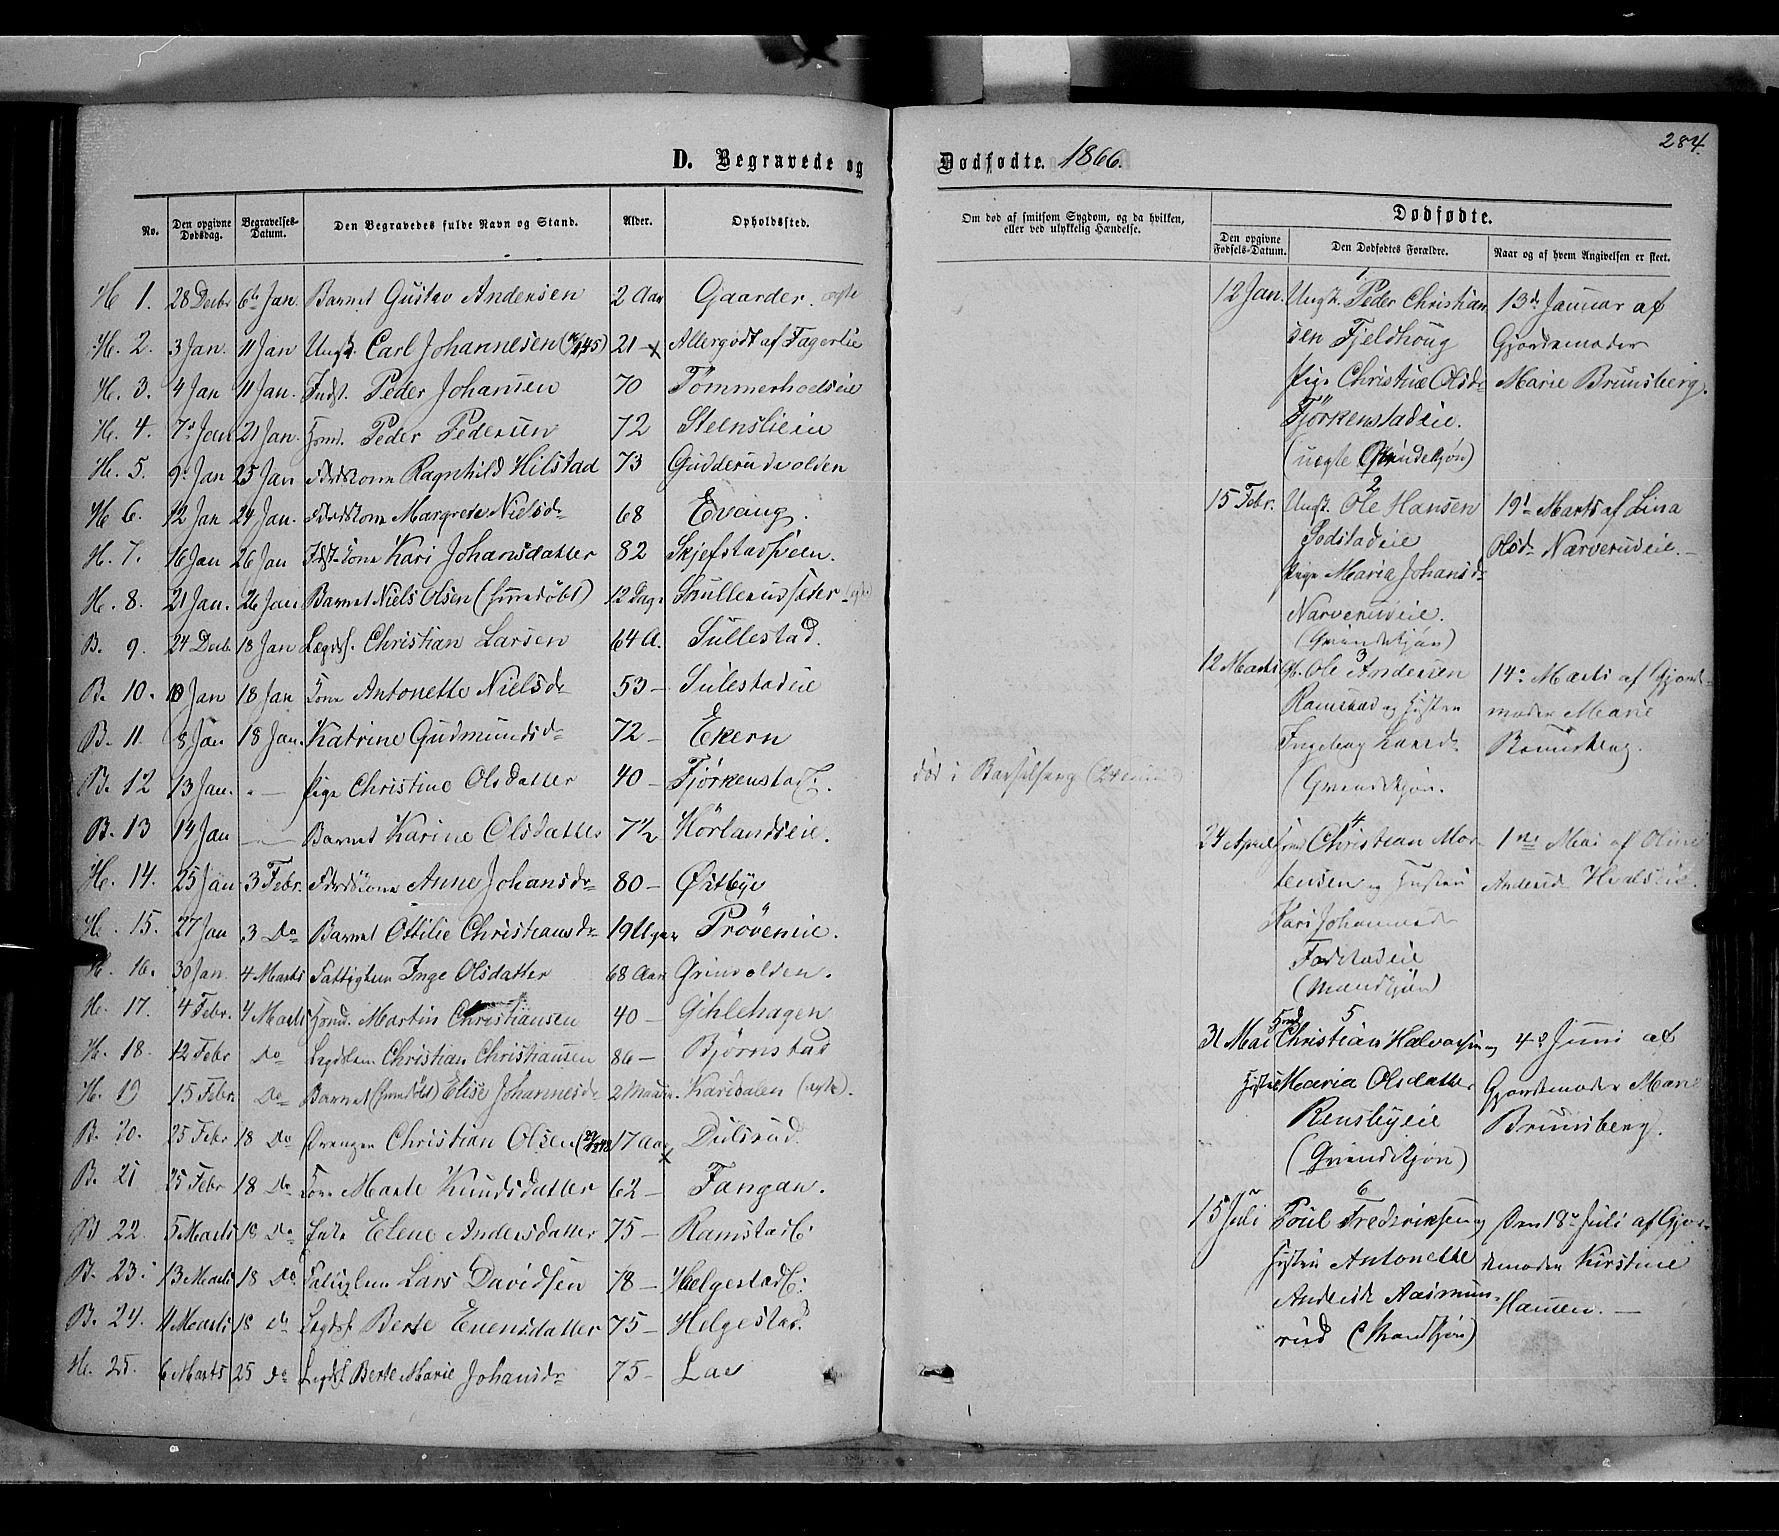 284.
D. Begravede og Dødfødte. 1866.
No.
Den opgivne Dødsdag.
Begravelses-Datum.
Den Begravedes fulde Navn og Stand.
Alder.
Opholdssted.
Om død af smitsom Sygdom, og da hvilken, eller ved ulykkelig Hændelse.
Dødfødte.
Den opgivne Fødsels-Datum.
Den Dødfødtes Forældre.
Naar og af hvem Angivelsen er skeet.
H 1. 28 Decbr 6te Jan. Barnet Gustav Andersen 2 Aar Gaarder. ægte
H. 2. 3 Jan. 11 Jan Ungk. Carl Johannesen 21 - x Allergodt af Fagerlie
H. 3. 4 Jan 11 Jan. Indst. Peder Johansen 70 Tømmerhodseie
H. 4. 7de Jan 21 Jan. Peder Pedersen 72
H. 5. 9de Jan 25 Jan Ragnhild Hilstad 73 Gudderudvolden
H 6. 12 Jan 24 Jan. Margrete Nielsdr 68 Evang.
H. 7. 16 Jan 26 Jan Kari Johansdatter 82
H. 8. 21 Jan. 26 Jan Barnet Niels Olsen 12 Dage
B. 9. 24 Decb. 18 Jan Lægdsl. Christian Larsen 64 A. Sullestad.
B. 10. 10 Jan 18 Jan Kone Antonette Nielsdr 53 - Sulestadeie
B. 11. 8 Jan 18 Jan. Katrine Gudmundsdr 72 - Ekern
B. 12 13 Jan. " - Pige Christine Olsdatter 40 - Fjørkenstad E. død i Barselseng
B. 13 14 Jan Barnet Karine Olsdatter 7 1/2 Hørlandseie.
H. 14. 25 Jan 3 Febr. Anne Johansdr 80 - Østbye
H. 15. 27 Jan 3 Do Barnet Ottilie Christiansdr 19 Uger Prøveneie.
H. 16. 30 Jan. 4 Marts Fattiglem Inge Olsdatter 68 Aar Grinvolden.
H. 17. 4 Febr. 4 Marts Martin Christiansen 40 - Gihlehagen
H. 18. 12 Febr Do Lægdslem Christian Christiansen 86 - Bjørnstad
H. 19 15 Febr. Do Barnet Elise Johannesdr 2 Maan. Karidalen (ægte).
B. 20. 25 Febr 18 Do Drengen Christian Olsen 17 Aar x Dulsrud.
B. 21 25 Febr 18 Do Kone Marte Knudsdatter 62 - Fangan.
B 22. 5 Marts 18 Do Enke Elene Andersdatter 75 - Ramstad E.
B. 23. 13 Marts 18 Do Fattiglem Lars Davidsen 78 - Helgestad E.
B. 24. 11 Marts 18 Do Lægdsl Berte Evensdatter 75 - Helgestad.
H. 25. 6 Marts 25 Do Lægdsl Berte Marie Johansdr 75 -
1
12 Jan. Ungk. Peder Christian
sen Fjeldhoug
Pige Christine Olsdr
Fjørkenstadeie.
(uegte Qvindekjøn)
13de Januar af
Gjordemoder
Marie Brunsberg.
2
15 Febr. Ungk. Ole Hansen
Sodstadeie
Pige Maria Johansdr
Narverudeie.
(Qvindekjøn)
19de Marts af Lina
Olsdr Narverudeie. -
3
12 Marts Gb. Ole Andersen
Ramstad og Hustru
Ingeborg Larsdr
(Qvindekjøn.
14de Marts af Gjorde-
moder Marie
Brunsberg.
4
24 April Christian Mor-
tensen og Hustru
Kari Johannesdr
(Mandkjøn)
1ste Mai af Oline
Andersdr
5
31 Mai Christian Halvorsen og
Hustru Maria Olsdatter
Rensbyeie
(Qvindekjøn)
4de Juni af
Gjordemoder Marie
Brunsberg.
6
15 Juli Poul Fredriksen og
Hustru Antonette
Andersdr Aasmun-
rud (Mandkjøn)
Den 18de Juli af Gjor-
demoder Kirstine
Hansen. -